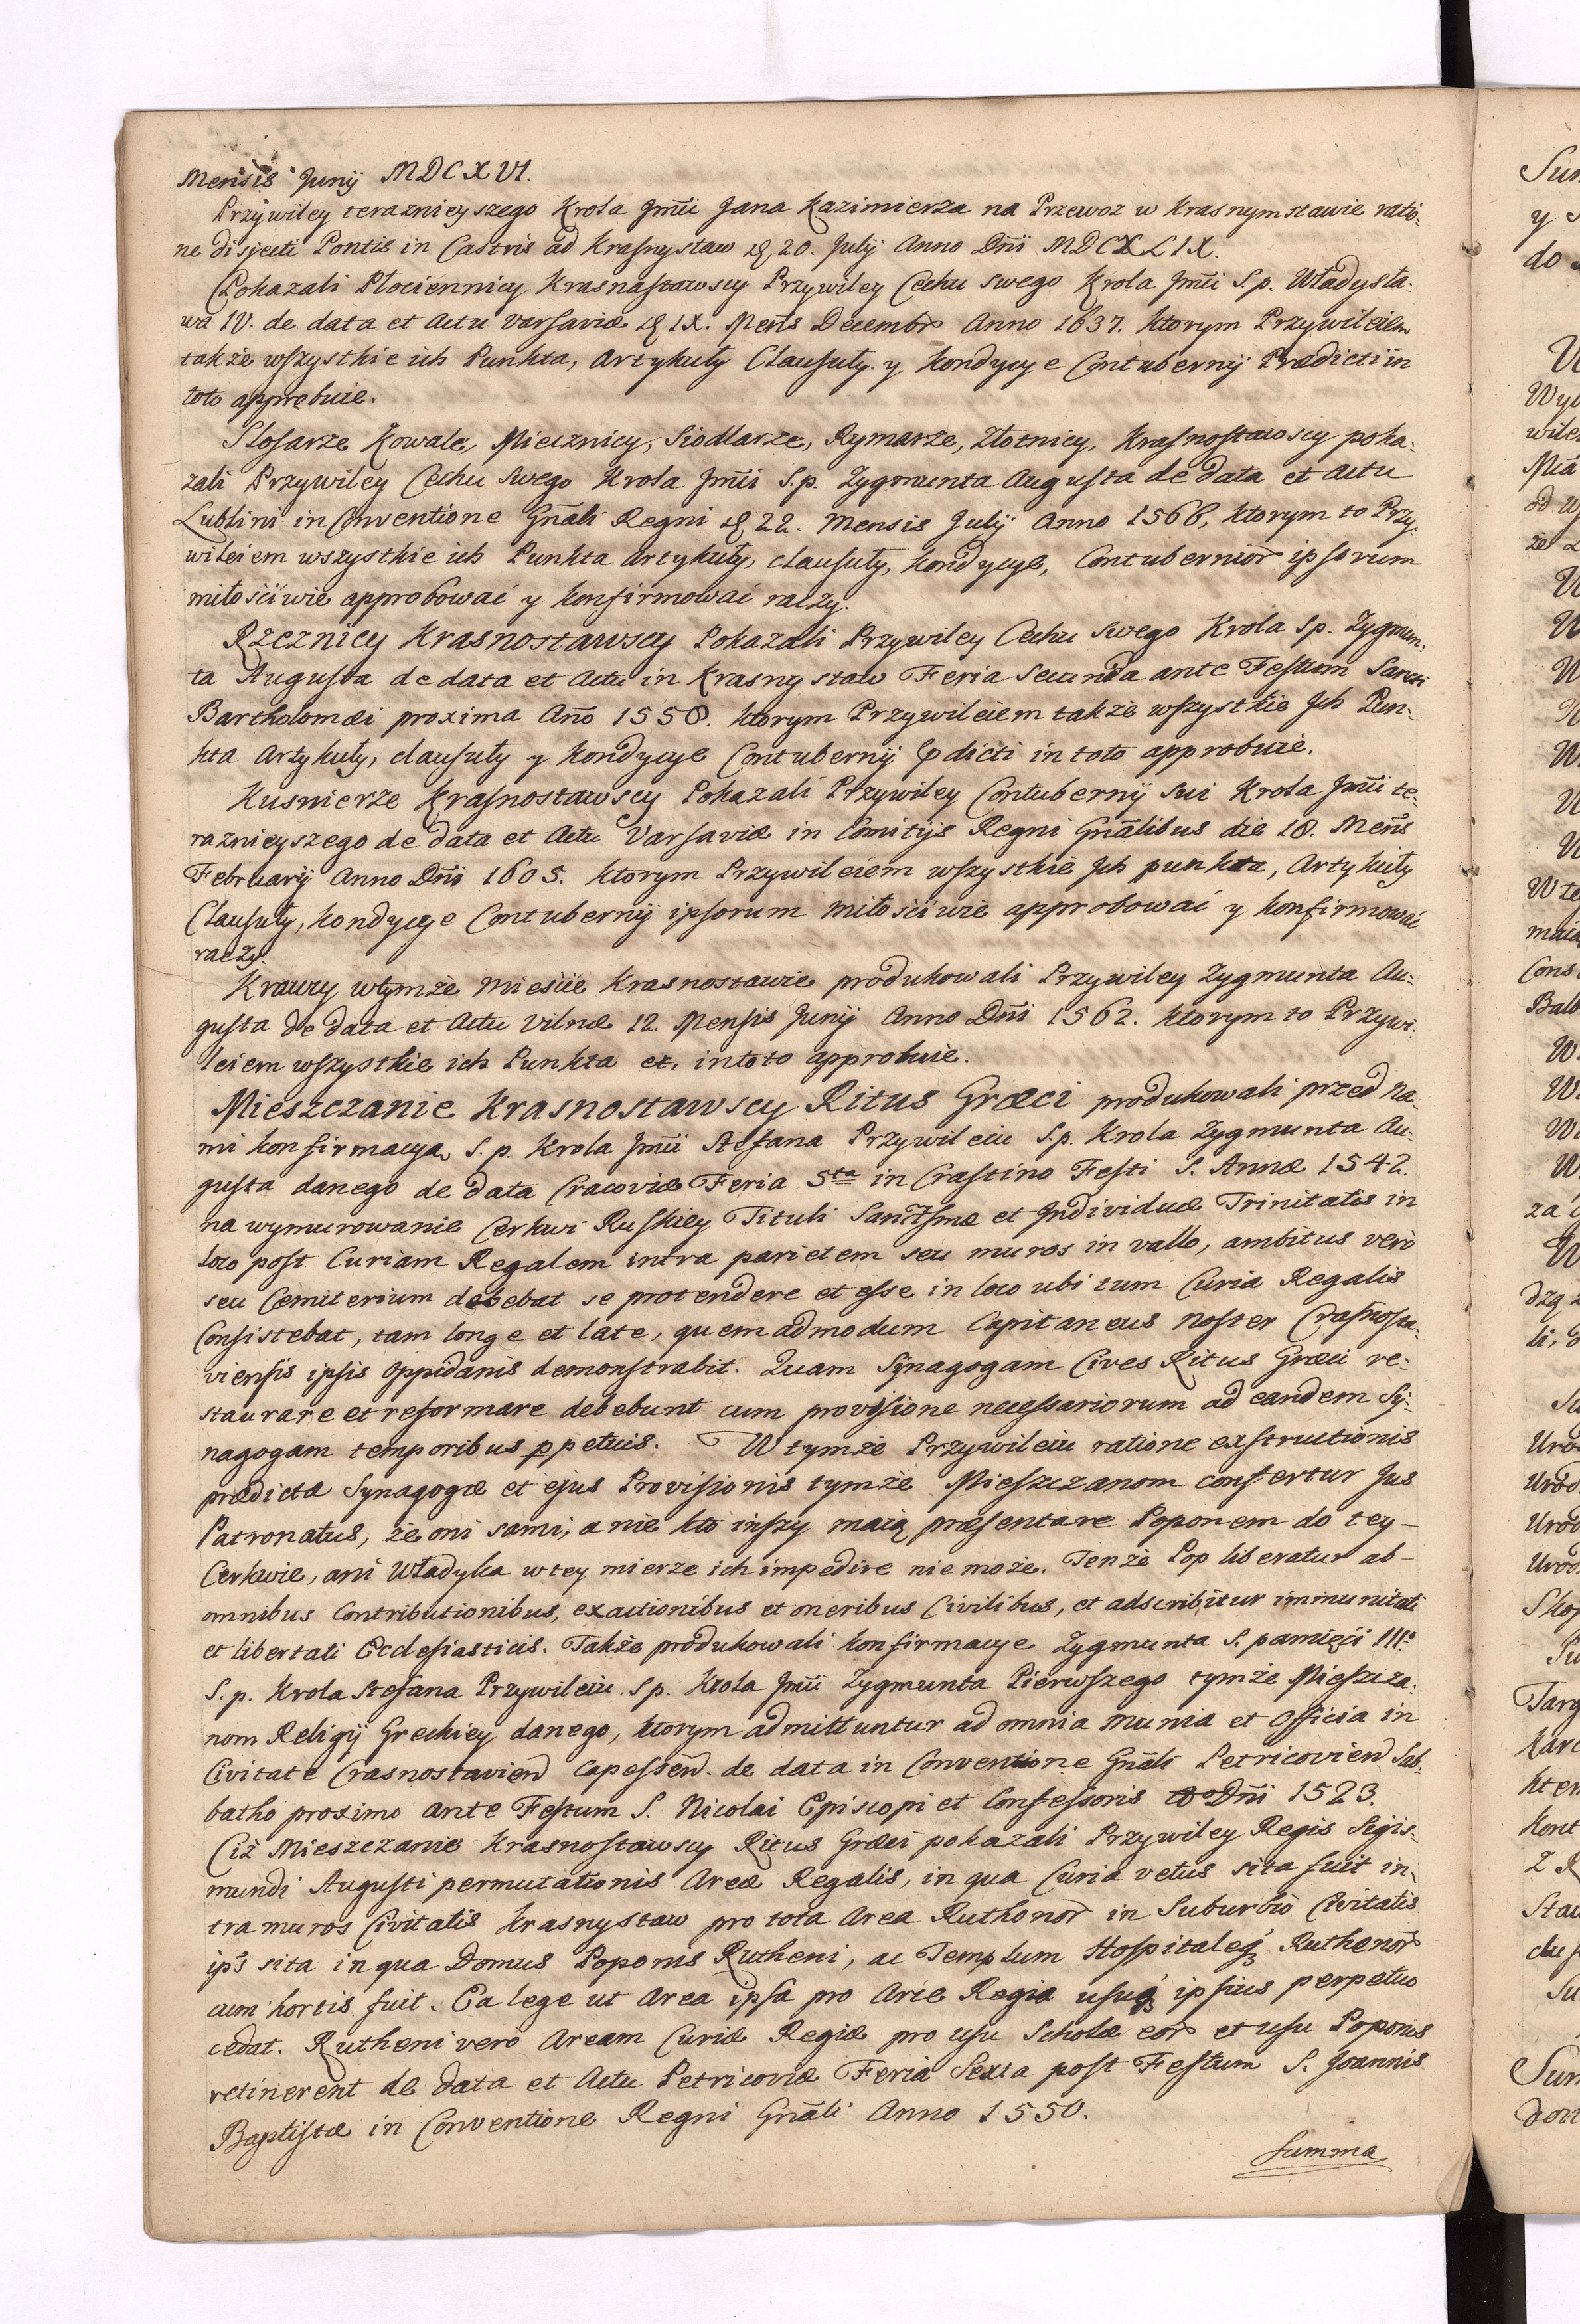 Mensis Junij MDCXVI.
Przywiley teraznieyszego Krola Jmći Jana Kazimierza na Przewoz w Krasnymstawie ratio-
ne disjecti Pontis in Castris ad Krasnystaw 20. July Anno Dñi MDCXLIX.
Pokazali Płociennicy Krasnastawscy Przywiley Cechu swego Krola Jmći S.p. Władysła-
wa IV. de data et Actu Varsaviæ IX. Meñs Decembr Anno 1637. ktorym Przywileiem
także wszystkie ich Punkta, Artykuły Clausuły y kondycye Contubernij Prædicti in
toto approbuie.
Slosarze Kowale, Miecznicy, Siodlarze, Rymarze, Złotnicy, Krasnostawscy poka-
zali Przywiley Cechu swego Krola Jmći S.p. Zygmunta Augusta de data et Actu
Lublini in Conventione Gñali Regni 22. Mensis July Anno 1566, ktorym to Przy-
wileiem wszystkie ich Punkta Artykuły, clausuły, kondycye, Contubernior ipsorum
miłościwie approbowac y konfirmowac raczy.
Rzeznicy Krasnostawscy Pokazali Przywiley Cechu swego Krola Sp. Zygmun-
ta Augusta de data et Actu in Krasnystaw Feria Secunda ante Festum Sancti
Bartholomæi proxima Año 1558. ktorym Przywileiem także wszystkie Jch Pun-
kta Artykuły, clausuły y kondycye Contubernij pdicti in toto approbuie.
Kusnierze Krasnostawscy Pokazali Przywiley Contubernij sui Krola Jmći te-
raznieyszego de data et Actu Varsaviæ in Comitijs Regni Gñalibus die 18. Meñs
Februarij Anno Dñi 1605. ktorym Przywileiem wszystkie Jch punkta, Artykuły
Clausuły, kondycye Contubernij ipsorum miłościwie approbowac y konfirmowac
raczy.
Krawcy wtymże Mieście Krasnostawie produkowali Przywiley Zygmunta Au-
gusta de data et Actu Vilnæ 12. Mensis Junij Anno Dñi 1562. ktorym to Przywi-
leiem wszystkie ich Punkta et. intoto approbuie.
Mieszczanie Krasnostawscy Ritus Græci produkowali przed na-
mi konfirmacyą S.p. Krola Jmći Stefana Przywileiu S.p. Krola Zygmunta Au-
gusta danego de data Cracoviæ Feria 5ta in Crastino Festi S. Annæ 1542.
na wymurowanie Cerkwi Ruskiey Tituli Sanctsmæ et Individuæ Trinitatis in
loco post Curiam Regalem intra parietem seu muros in vallo, ambitus vero
seu Cæmiterium debebat se protendere et esse in loco ubi tum Curia Regalis
Consistebat, tam longe et late, quemadmodum Capitaneus Noster Crasnosta-
viensis ipsis oppidanis demonstrabit. Quam Synagogam Cives Ritus Græci re-
staurare et reformare debebunt cum provisione necessariorum ad eandem Sy-
nagogam temporibus ppetuis. W tymże Przywileiu ratione exstructionis
prædictæ Synagogæ et ejus Provisionis tymże Mieszczanom confertur Jus
Patronatus, że oni sami, a nie kto inszy maią præsentare Poponem do tey-
Cerkwie, ani Władyka wtey mierze ich impedire nie może. Tenże Pop liberatur ab-
omnibus Contributionibus, exactionibus et oneribus Civilibus, et adscribitur immunitati
et libertati Ecclesiasticis. Także produkowali konfirmacye Zygmunta S. pamięci III.
S.p. Krola Stefana Przywileiu S.p. Krola Jmći Zygmunta Pierwszego tymże Mieszcza-
nom Religij Greckiey danego, ktorym admittuntur ad omnia munia et officia in
Civitate Crasnostavien capessen. de data in Conventione Gñali Petricovien Sab-
batho proximo ante Festum S. Nicolai Episcopi et Confessoris Dñi 1523.
Ciż Mieszczanie Krasnostawscy Ritus Græci pokazali Przywiley Regis Sigis-
mundi Augusti permutationis Areæ Regalis, in qua Curia vetus sita fuit in-
tra muros Civitatis Krasnystaw pro tota Area Ruthonor in Suburbio Civitatis
ips sita in qua Domus Poponis Rutheni, ac Templum Hospitaleq Ruthenor
cum hortis fuit. Ea lege ut Area ipsa pro Arce Regia usuq ipsius perpetuo
cedat. Rutheni vero Aream Curiæ Regiæ pro usu Scholæ eor et usu Poponis
retinerent de data et Actu Petricoviæ Feria Sexta post Festum S. Joannis
Baptistæ in Conventione Regni Gñali Anno 1550.
Summa